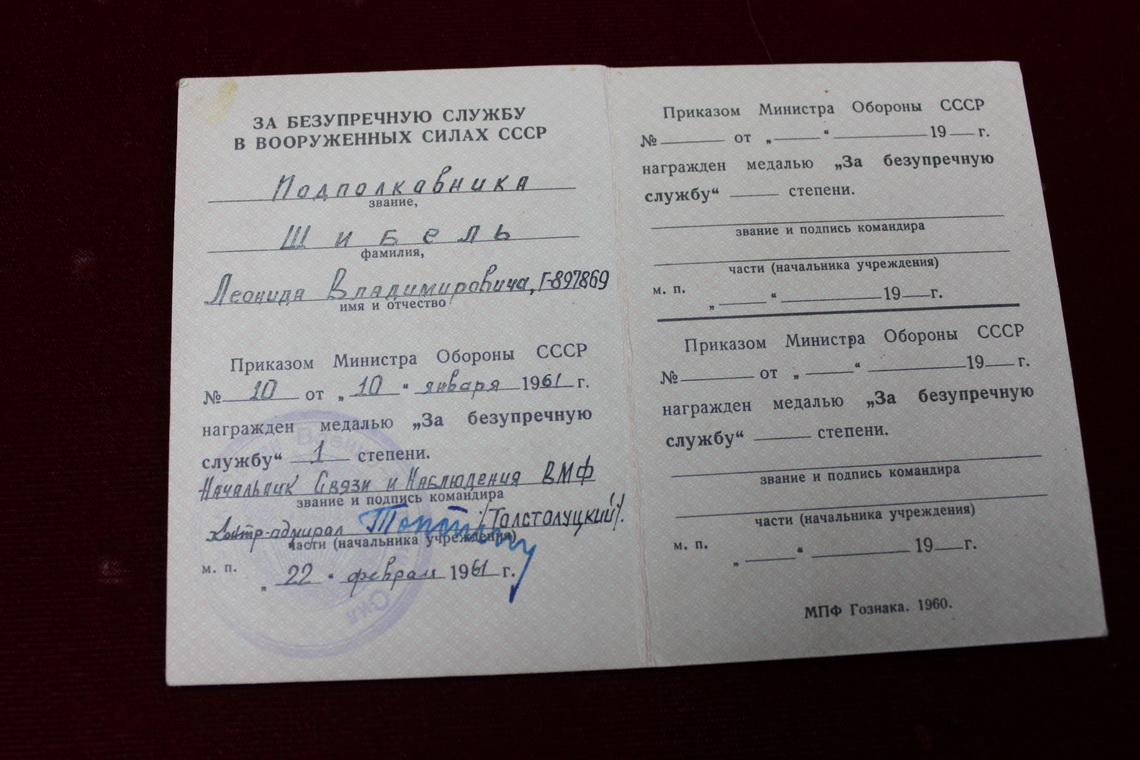 ЗА БЕЗУПРЕЧНУЮ СЛУЖБУ
В ВООРУЖЕННЫХ СИЛАХ СССР
Подполкавника
звание,
Шибель
фамилия,
Леонида Владимировича, Г-897869
имя и отчество
Приказом Министра Обороны СССР
№ 10 от „ 10 “ января 1961 г.
награжден медалью „За безупречную
службу“ 1 степени.
Начальник Связи и Наблюдения ВМФ
звание и подпись командира
контр-адмирал /Толстолуцкий/.
части (начальника учреждения)
м. п.
„ 22 “ февраля 1961 г.
Приказом Министра Обороны СССР
№ от „ “ 19 г.
награжден медалью „За безупречную
службу“ степени.
звание и подпись командира
части (начальника учреждения)
м. п.
„ “ 19 г.
Приказом Министра Обороны СССР
№ от „ “ 19 г.
награжден медалью „За безупречную
службу“ степени.
звание и подпись командира
части (начальника учреждения)
м. п.
„ “ 19 г.
МПФ Гознака. 1960.